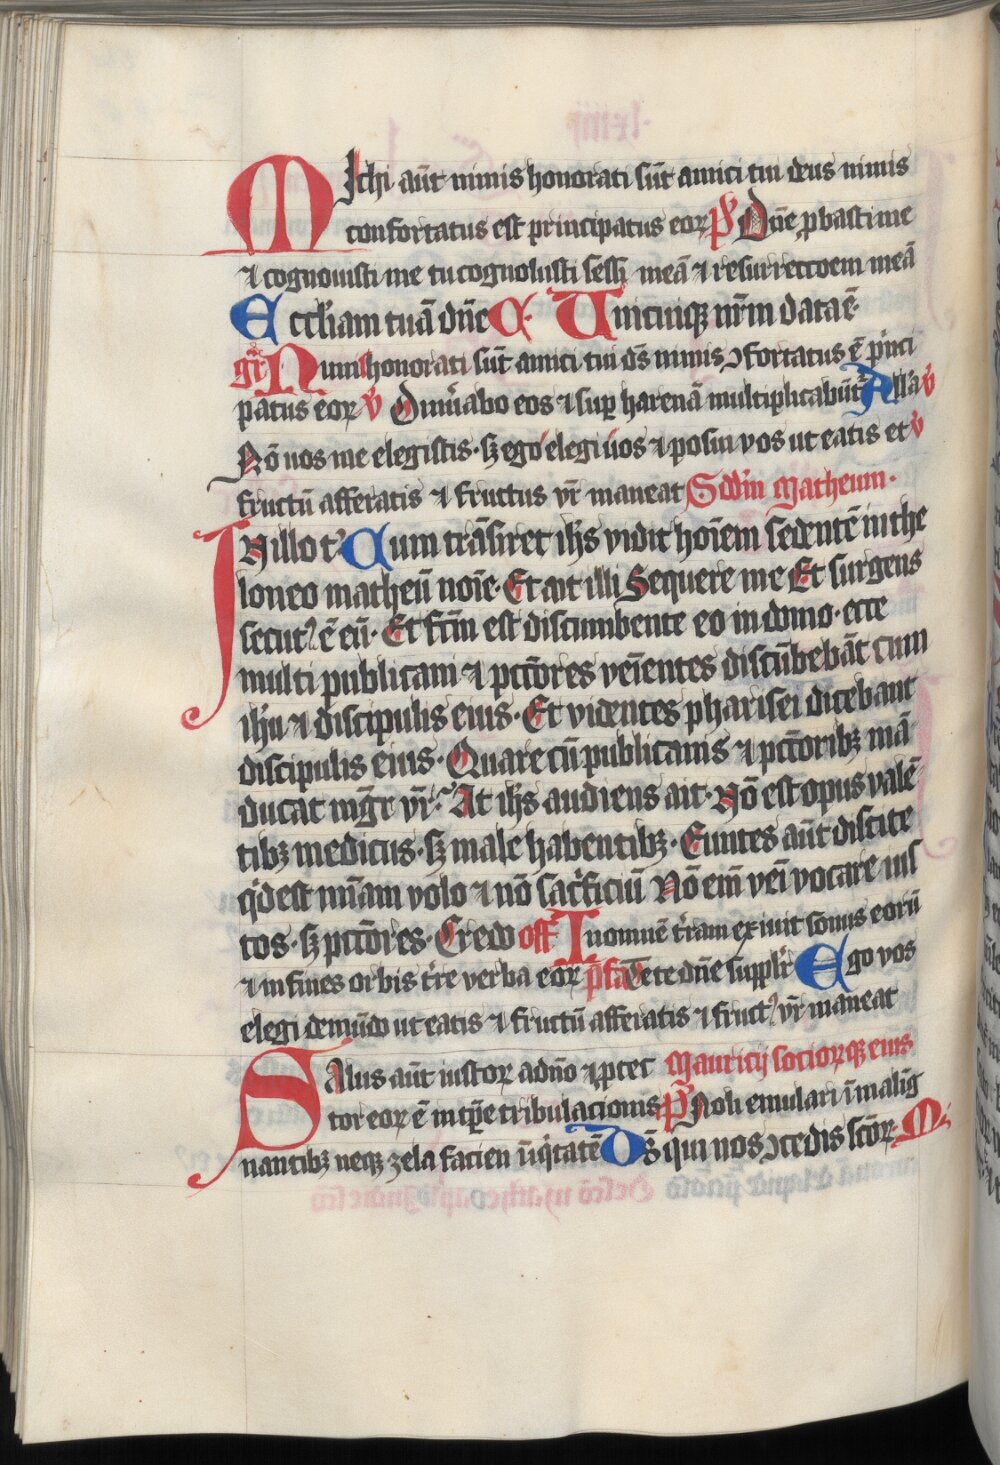 MIchi aūt nimis honorati sūt amici tui deus nimis
confortatus est principatus eoꝝ p̄s Dn̄e ꝓbasti me
⁊ cognouisti me tu cognouisti sess meā ⁊ resurrectoem meā
Eccl̄iam tuā dn̄e C Unicuiqꝫ nr̄m data ē
gr̄ Nimis honorati sūt amici tui ds̄ nimis ↄfortatus ē pⁱnci
patus eoꝝ v̄ Dinūabo eos ⁊ suꝑ harenā multiplicabūt Alla v̄
Nō uos me elegistis · sꝫ ego elegi uos ⁊ posui vos ut eatis et v̄
fructū afferatis ⁊ fructus vr̄ maneat Scdm Matheum ·
IN illo t̄ Cum trāsiret ih̄s vidit hoīem sedentē in the
loneo matheū noīe · Et ait illi Sequere me Et surgens
secutꝰ ē eū · Et fc̄m est discumbente eo in domo · ecce
multi publicani ⁊ pcc̄ores veīentes discūbebāt cum
ih̄u ⁊ discipulis eius · Et videntes pharisei dicebant
discipulis eius · Quare cū publicanis ⁊ pcc̄oribꝫ mā
ducat mgr̄ vr̄ · At ih̄s audiens ait · Nō est opus valē
tibꝫ medicus · sꝫ male habentibꝫ · Euntes aūt discite
qⁱd est mīam volo ⁊ nō sacⁱficiū Nō em̄ veī vocare ius
tos · sꝫ pcc̄ores · Credo off̄ In omnē t̄ram exiuit sonus eorū
⁊ in fines orbis t̄re verba eoꝝ p̄fa Te dn̄e supplr̄ Ego vos
elegi de mūdo ut eatis ⁊ fructū afferatis ⁊ fructꝰ vr̄ maneat
SAlus aūt iustoꝝ a dn̄o ⁊ ꝓtec Mauricij socioꝝqꝫ eius
tor eoꝝ ē in tꝑe tribulacionis p̄s Noli emulari ī malig
nantibꝫ neqꝫ zela facien īiqⁱtatē Ds̄ qui nos ↄcedis scōꝝ · M